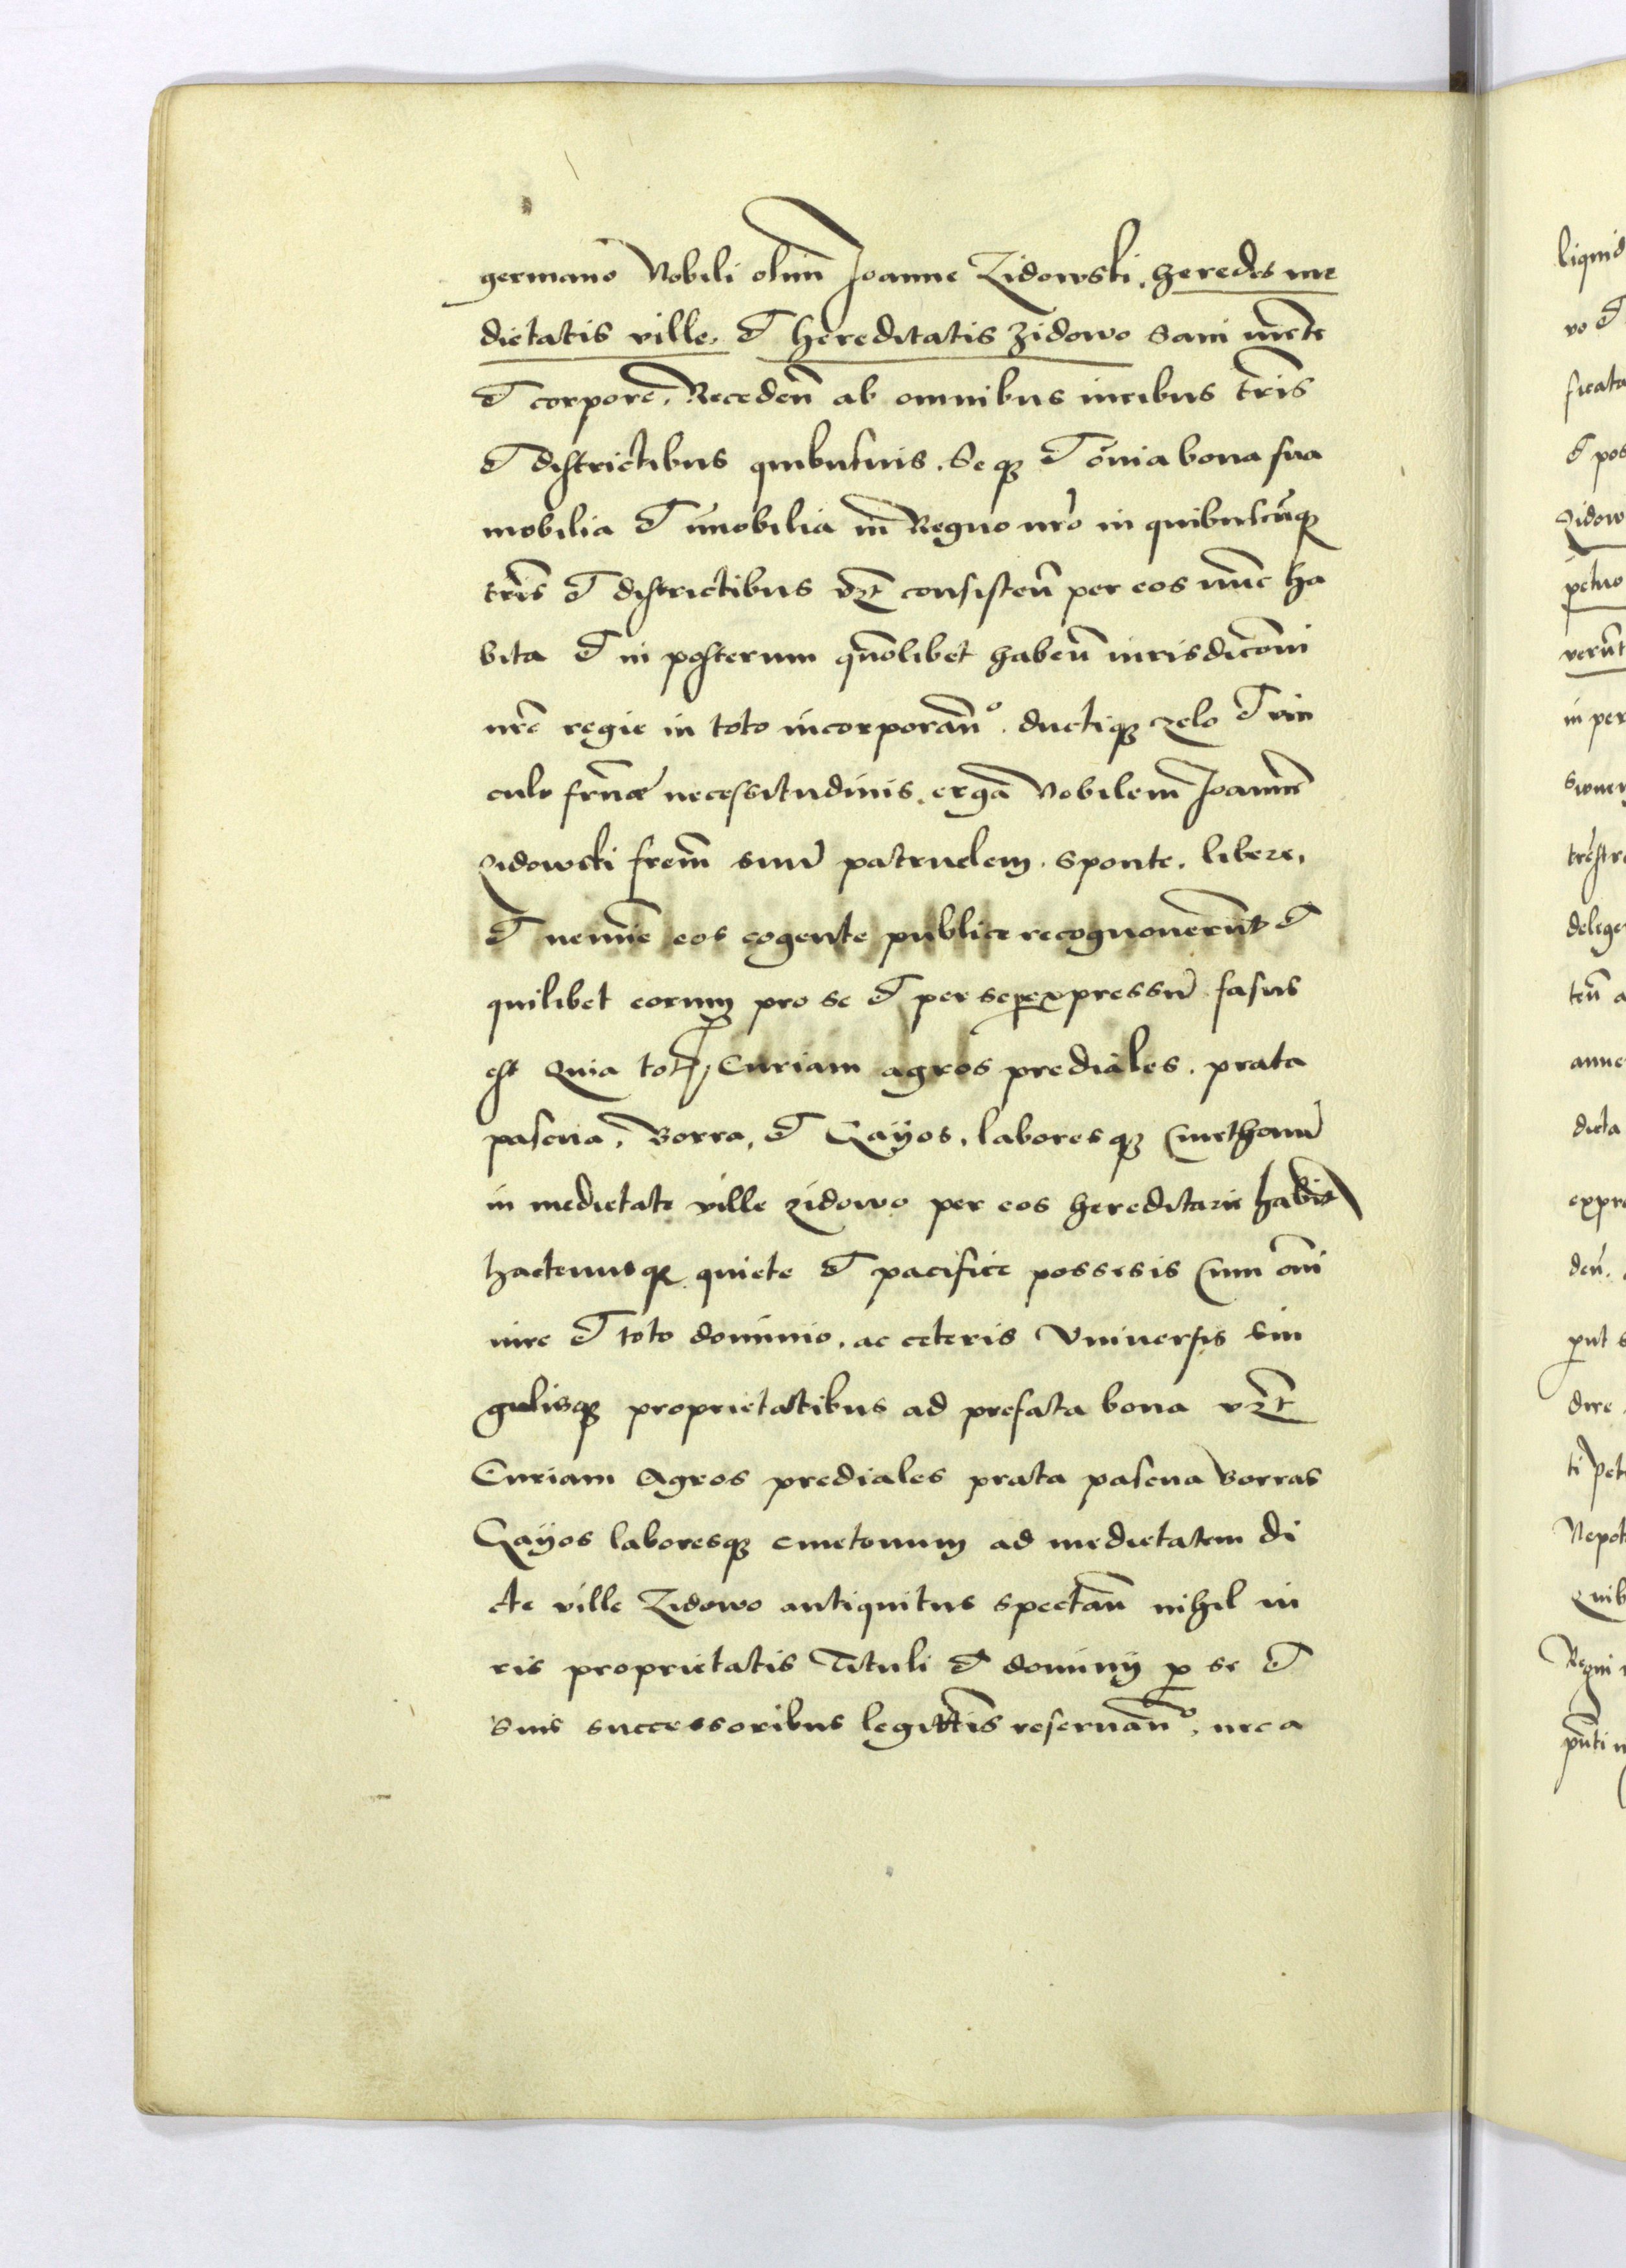 germano Nobili olim̄ Joanne Zidowski, heredes me
dietatis ville, et hereditatis Zidowo sani mēte
et corpore, Receden̄ ab omnibus iuribus tr̄is
et districtibus quibusuis. Seqꝫ et om̄ia bona sua
mobilia et im̄obilia in Regno nr̄o in quibuscūqꝫ
tr̄is et districtibus vꝫt consisten̄ per eos nunc ha
bita et in posterum qūolibet haben̄ iurisdicōni
nr̄e regie in toto incorporan̄º. ductiqꝫ zelo et vin
culo fr̄nae necessitudinis, erga Nobilem Joannē
Zidowski frem̄ suū patruelem. sponte, libere,
et nemīe eos cogente publice recognouerūt et
quilibet eorum pro se et per se expressū fasus
est Quia totā Curiam agros prediales. prata
pascua, borra, et Gayos, laboresqꝫ Cmethonū
in medietate ville zidowo per eos hereditarie habit
hactenusqꝫ quiete et pacifice possesis Cum om̄i
iure et toto dominio, ac ceteris Vniuersis sin
gulisqꝫ proprietatibus ad prefata bona vꝫt
Curiam Agros prediales prata pascua borras
Gayos laboresqꝫ cmetonum ad medietatem di
cte ville Zidowo antiquitus spectan̄ nihil iu
ris proprietatis Tituli et dominij ꝓ se et
suis successoribus legittīs reseruan̄º. nec a